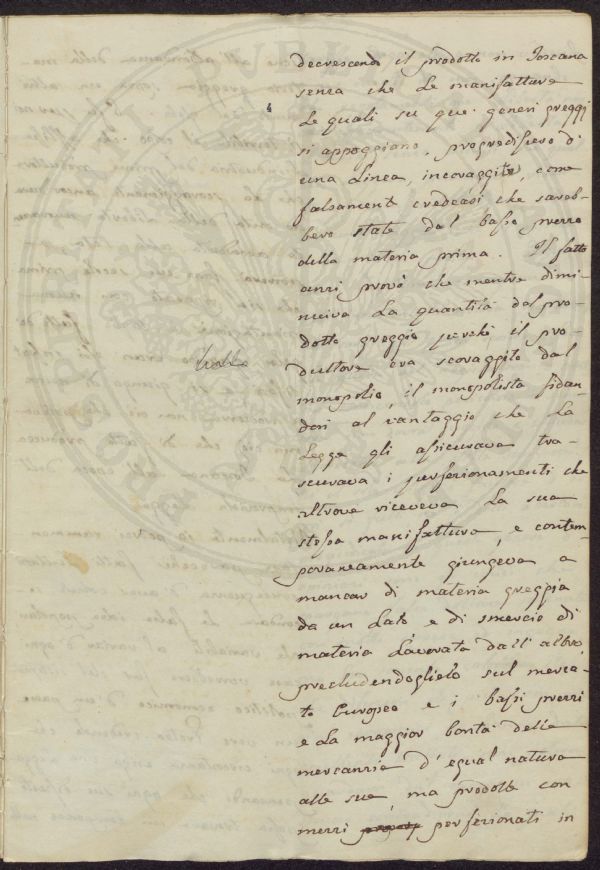 decrescendo il prodotto in Toscana
senza che le manifatture
le quali su que' generi greggi
si appoggiano, progredissero d'
una linea, incoraggite, come
falsament credeasi che sareb-
bero state dal basso prezzo
della materia prima. Il fatto
anzi provò che mentre dimi-
nuiva la quantità del pro-
dotto greggio perché il pro-
duttore era scoraggito dal
monopolio, il monopolista fidan-
dosi al vantaggio che la
Legge gli assicurava tra-
scurava i perfezionamenti che
altrove riceveva la sua
stessa manifattura, e contem-
poraneamente giungeva a
mancar di materia greggia
da un lato e di smercio di
materia lavorata dall'altro,
precludendoglielo sul merca-
to Europeo e i bassi prezzi
e la maggior bontà delle
mercanzie d'egual natura
alle sue, ma prodotte con
mezzi perfezionati in